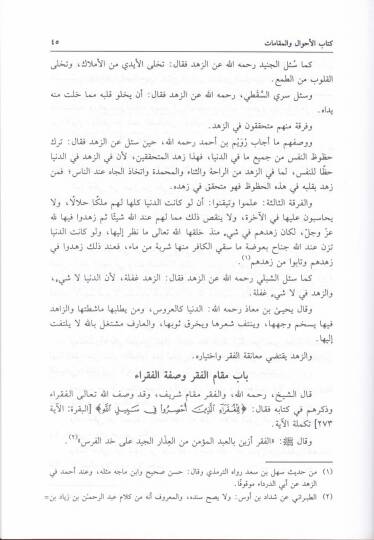 كتاب الأحوال والمقامات ٤٥
كما سُئل الجنيد رحمه الله عن الزهد فقال: تخلى الأيدي من الأملاك، وتخلى
القلوب من الطمع.
وسئل سري السَّقَطي، رحمه الله عن الزهد فقال: أن يخلو قلبه مما خلت منه
يداه.
وفرقة منهم متحققون في الزهد.
ووصفهم ما أجاب رُوَيْم بن أحمد رحمه الله، حين سئل عن الزهد فقال: ترك
حظوظ النفس من جميع ما في الدنيا، فهذا زهد المتحققين، لأن في الزهد في الدنيا
حظًّا للنفس، لما في الزهد من الراحة والثناء والمحمدة واتخاذ الجاه عند الناس؛ فمن
زهد بقلبه في هذه الحظوظ فهو متحقق في زهده.
والفرقة الثالثة: علموا وتيقنوا: أن لو كانت الدنيا كلها لهم ملكًا حلالًا، ولا
يحاسبون عليها في الآخرة، ولا ينقص ذلك مما لهم عند الله شيئًا ثم زهدوا فيها لله
عزّ وجلّ، لكان زهدهم في شيء منذ خلقها الله تعالى ما نظر إليها، ولو كانت الدنيا
تزن عند الله جناح بعوضة ما سقي الكافر منها شربة من ماء، فعند ذلك زهدوا في
زهدهم وتابوا من زهدهم(١).
كما سئل الشبلي رحمه الله عن الزهد فقال: الزهد غفلة، لأن الدنيا لا شيء،
والزهد في لا شيء غفلة.
وقال يحيىٰ بن معاذ رحمه الله في الزهد: الدنيا كالعروس، ومن يطلبها ماشطتها والزاهد
فيها يسخم وجهها، وينتف شعرها ويخرق ثوبها، والعارف مشتغل بالله لا يلتفت
إليها.
والزهد يقتضي معانقة الفقر واختياره.
باب مقام الفقر وصفة الفقراء
قال الشيخ، رحمه الله، والفقر مقام شريف، وقد وصف الله تعالى الفقراء
وذكرهم في كتابه فقال: ﴿لِلْفُقَرَآءِ ٱلَّذِينَ أُحْصِرُوا۟ فِى سَبِيلِ ٱللَّهِ﴾ [البقرة: الآية
٢٧٣] تكملة الآية.
وقال ﷺ: «الفقر أزين بالعبد المؤمن من العِذَار الجيد على خد الفرس»(٢).
(١) من حديث سهل بن سعد رواه الترمذي وقال: حسن صحيح وابن ماجه مثله، وعند أحمد في
الزهد عن أبي الدرداء موقوفًا.
(٢) الطبراني عن شداد بن أوس: ولا يصح سنده، والمعروف أنه من كلام عبد الرحمٰن بن زياد بن=